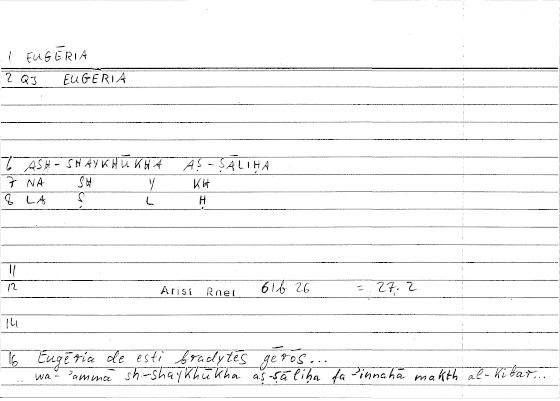 1 EUGĒRIA
2 QJ EUGERIA
6 ASH-SHAYKHŪKHA AṢ-ṢĀLIḤA
7 NA SH Y KH
8 LA Ṣ L Ḥ
11
12 Arist Rhet 61b 26 = 27.2
14
16 Eugēria de esti bradytēs gērōs...
wa-'ammā sh-shaykhūkha aṣ-ṣāliḥa fa-'innahā makth al-kibar...